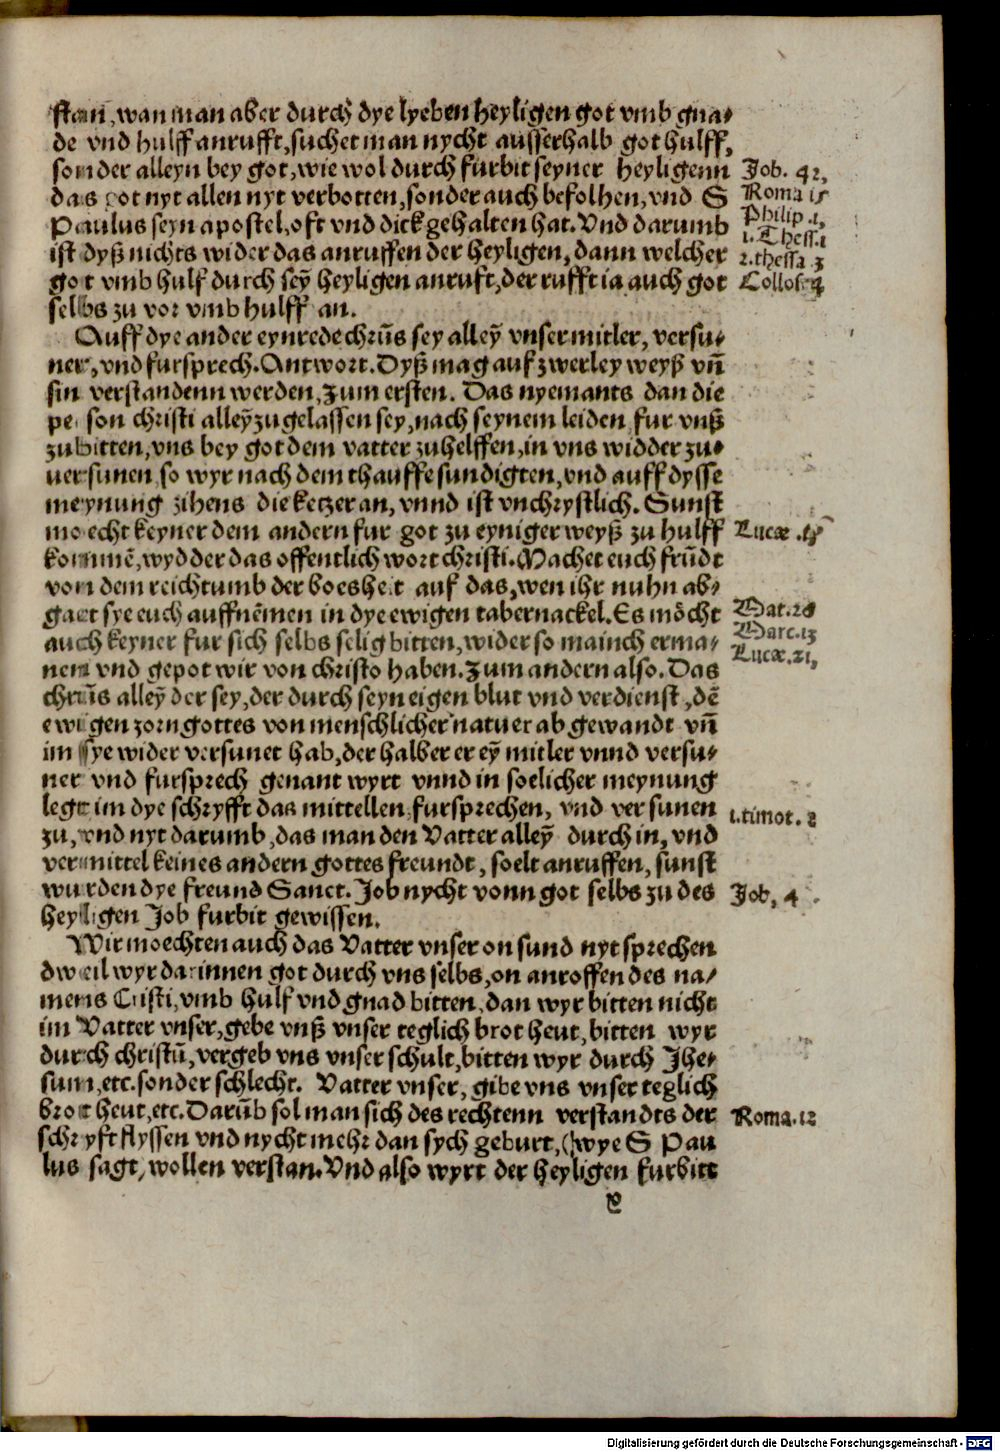 stan, wan man aber durch dye lyeben heyligen got vmb gna⸗
de vnd hulff anrufft, suchet man nycht ausserhalb got hulff,
sonder alleyn bey got, wie wol durch furbit seyner heyligenn
das got nyt allen nyt verbotten, sonder auch befolhen, vnd S
Paulus seyn apostel, oft vnd dick gehalten hat. Vnd darumb
ist dyß nichts wider das anruffen der heyligen, dann welcher
got vmb hulf durch seỹ heyligen anruft, der rufft ia auch got
selbs zu vor vmb hulff an.
Job. 42,
Roma 15
Philip .1,
1. Thess. 1
2. thessa 3
Collos. 4
Auff dye ander eynrede chrũs sey alleỹ vnser mitler, versu⸗
ner, vnd fursprech. Antwort. Dyß mag auf zwerley weyß vñ
sin verstandenn werden, zum ersten. Das nyemants dan die
person christi alleỹ zugelassen sey, nach seynem leiden fur vnß
zubitten, vns bey got dem vatter zuhelffen, in vns widder zu⸗
uersunen so wyr nach dem thauffe sundigten, vnd auff dysse
meynung zihens die ketzer an, vnnd ist vnchrystlich. Sunst
moecht keyner dem andern fur got zu eyniger weyß zu hulff
kommẽ, wydder das offentlich wort christi. Machet euch frũdt
von dem reichtumb der boesheit auf das, wen ihr nuhn ab⸗
gaet sye euch auffnẽmen in dye ewigen tabernackel. Es möcht
auch keyner fur sich selbs selig bitten, wider so mainch erma⸗
nen vnd gepot wir von christo haben. Zum andern also. Das
chrũs alleỹ der sey, der durch seyn eigen blut vnd verdienst, dẽ
ewigen zorn gottes von menschlicher natuer abgewandt vñ
im sye wider versunet hab, der halber er eỹ mitler vnnd versu⸗
ner vnd fursprech genant wyrt vnnd in soelicher meynung
legt im dye schryfft das mittellen fursprechen, vnd versunen
zu, vnd nyt darumb, das man den Vatter alleỹ durch in, vnd
vermittel keines andern gottes freundt, soelt anruffen, sunst
wurden dye freund Sanct. Job nycht vonn got selbs zu des
heyligen Job furbit gewissen.
Lucæ .16
Mat. 26
Marc. 13
Lucæ. 21,
1. timot. 2
Job, 4
Wir moechten auch das Vatter vnser on sund nyt sprechen
dweil wyr darinnen got durch vns selbs, on anroffen des na⸗
mens Cristi, vmb hulf vnd gnad bitten, dan wyr bitten nicht
im Vatter vnser, gebe vnß vnser teglich brot heut, bitten wyr
durch christũ, vergeb vns vnser schult, bitten wyr durch Jhe⸗
sum, etc. sonder schlecht. Vatter vnser, gibe vns vnser teglich
brott heut, etc. Darũb sol man sich des rechtenn verstandts der
schryft flyssen vnd nycht mehr dan sych geburt, (wye S Pau
lus sagt, wollen verstan. Vnd also wyrt der heyligen furbitt
Roma. 12
Digitalisierung gefördert durch die Deutsche Forschungsgemeinschaft - DFG